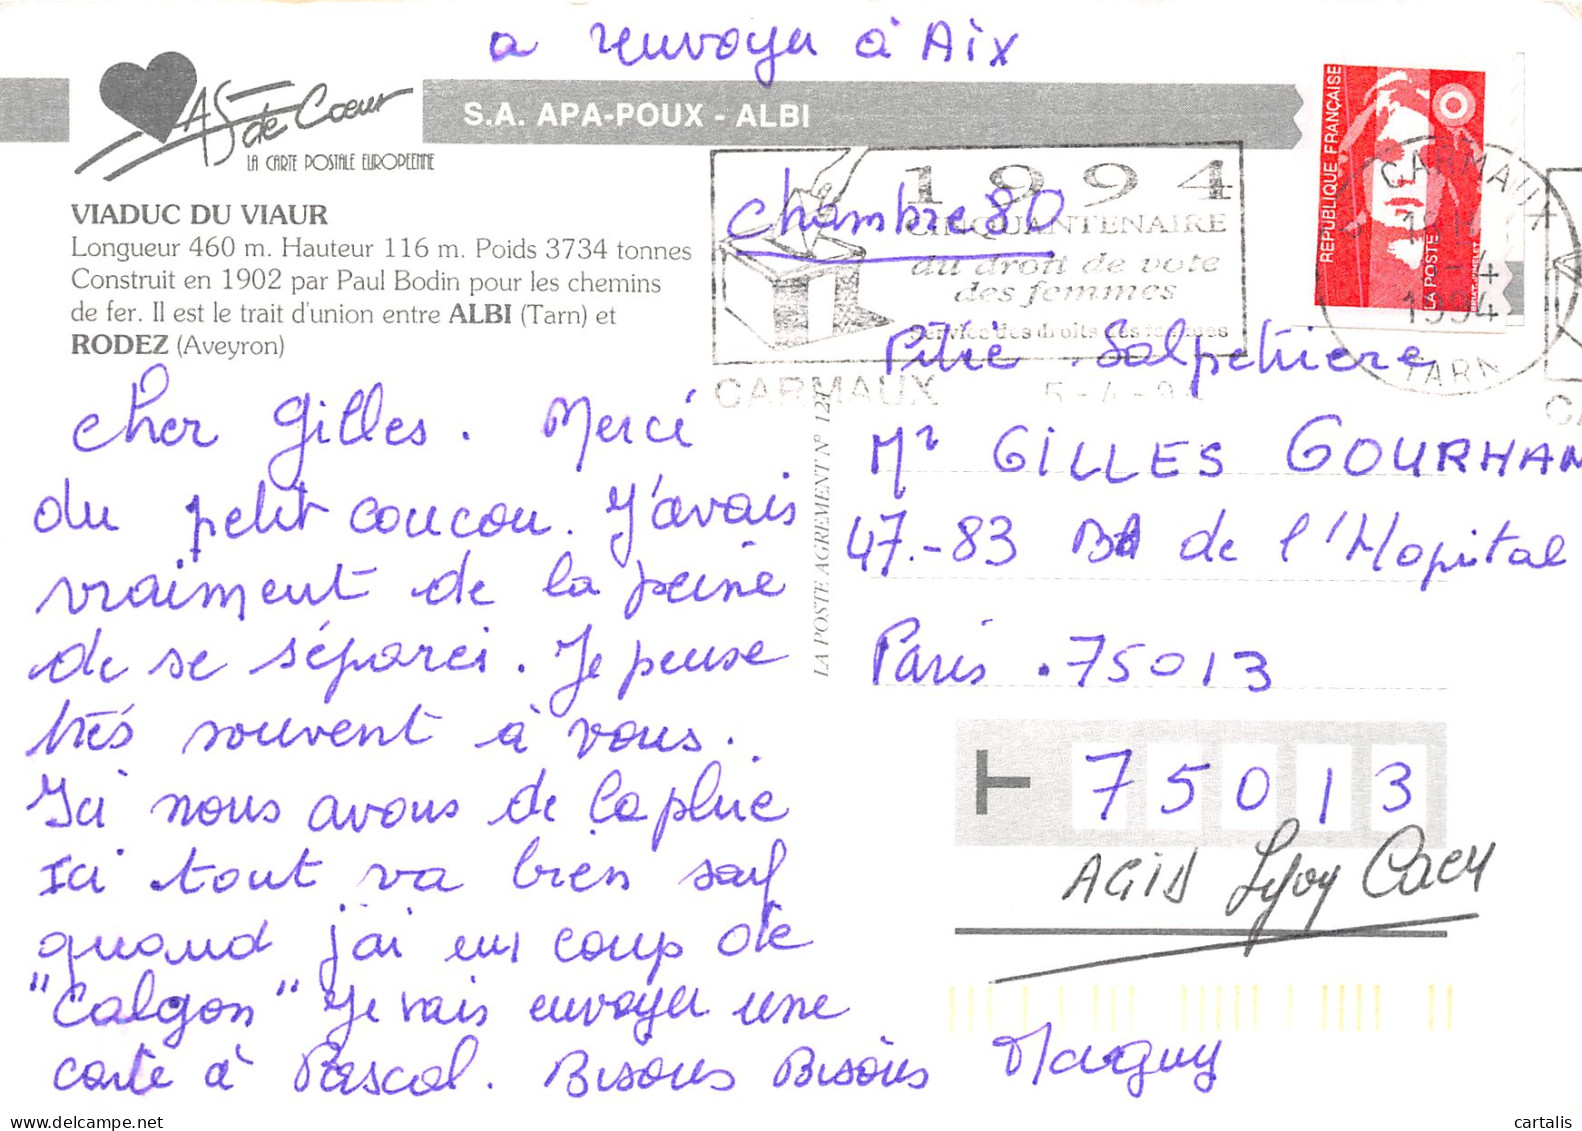 a renvoyer à Aix
AS de Cœur
LA CARTE POSTALE EUROPEENNE
S.A. APA-POUX - ALBI
VIADUC DU VIAUR
Longueur 460 m. Hauteur 116 m. Poids 3734 tonnes
Construit en 1902 par Paul Bodin pour les chemins
de fer. Il est le trait d'union entre ALBI (Tarn) et
RODEZ (Aveyron)
1994
CINQUANTENAIRE
du droit de vote
des femmes
Service des droits des femmes
CARMAUX 5-4-94
REPUBLIQUE FRANÇAISE
LA POSTE
CARMAUX
18 H
1994
TARN
chambre 80
Cher Gilles. Merci
du petit coucou. J'avais
vraiment de la peine
de se séparer. Je pense
très souvent à vous.
Ici nous avons de la pluie
Ici tout va bien sauf
quand j'ai eu coup de
"Calgon" Je vais envoyer une
carte à Pascal. Bisous Bisous Marguy
LA POSTE AGREMENT N° 121
Pitié Salpetriere
Mr GILLES GOURHAN
47.-83 Bd de l'Hopital
Paris .75013
75013
AGID
cartalis